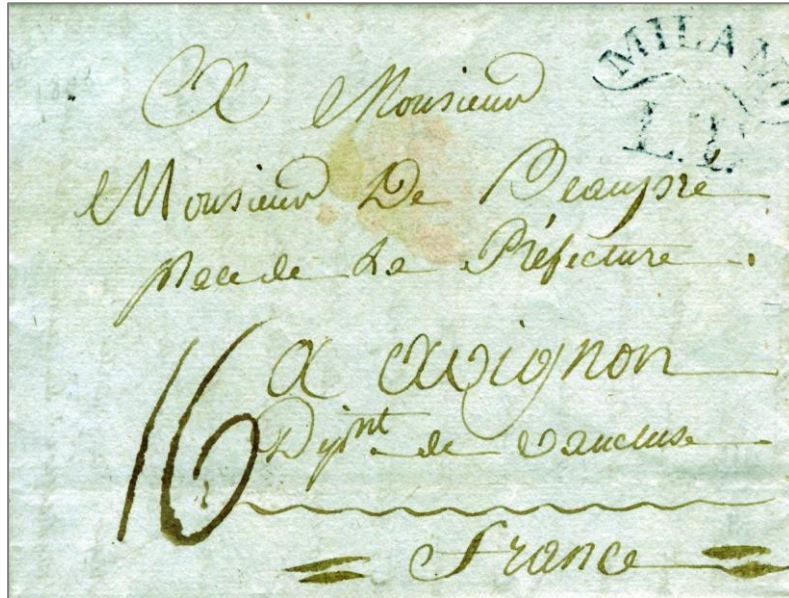 MILANO
L.T.
A Monsieur
Monsieur De Beaupré
place de La Préfecture.
16
a avignon
Dépnt de vaucluse
France